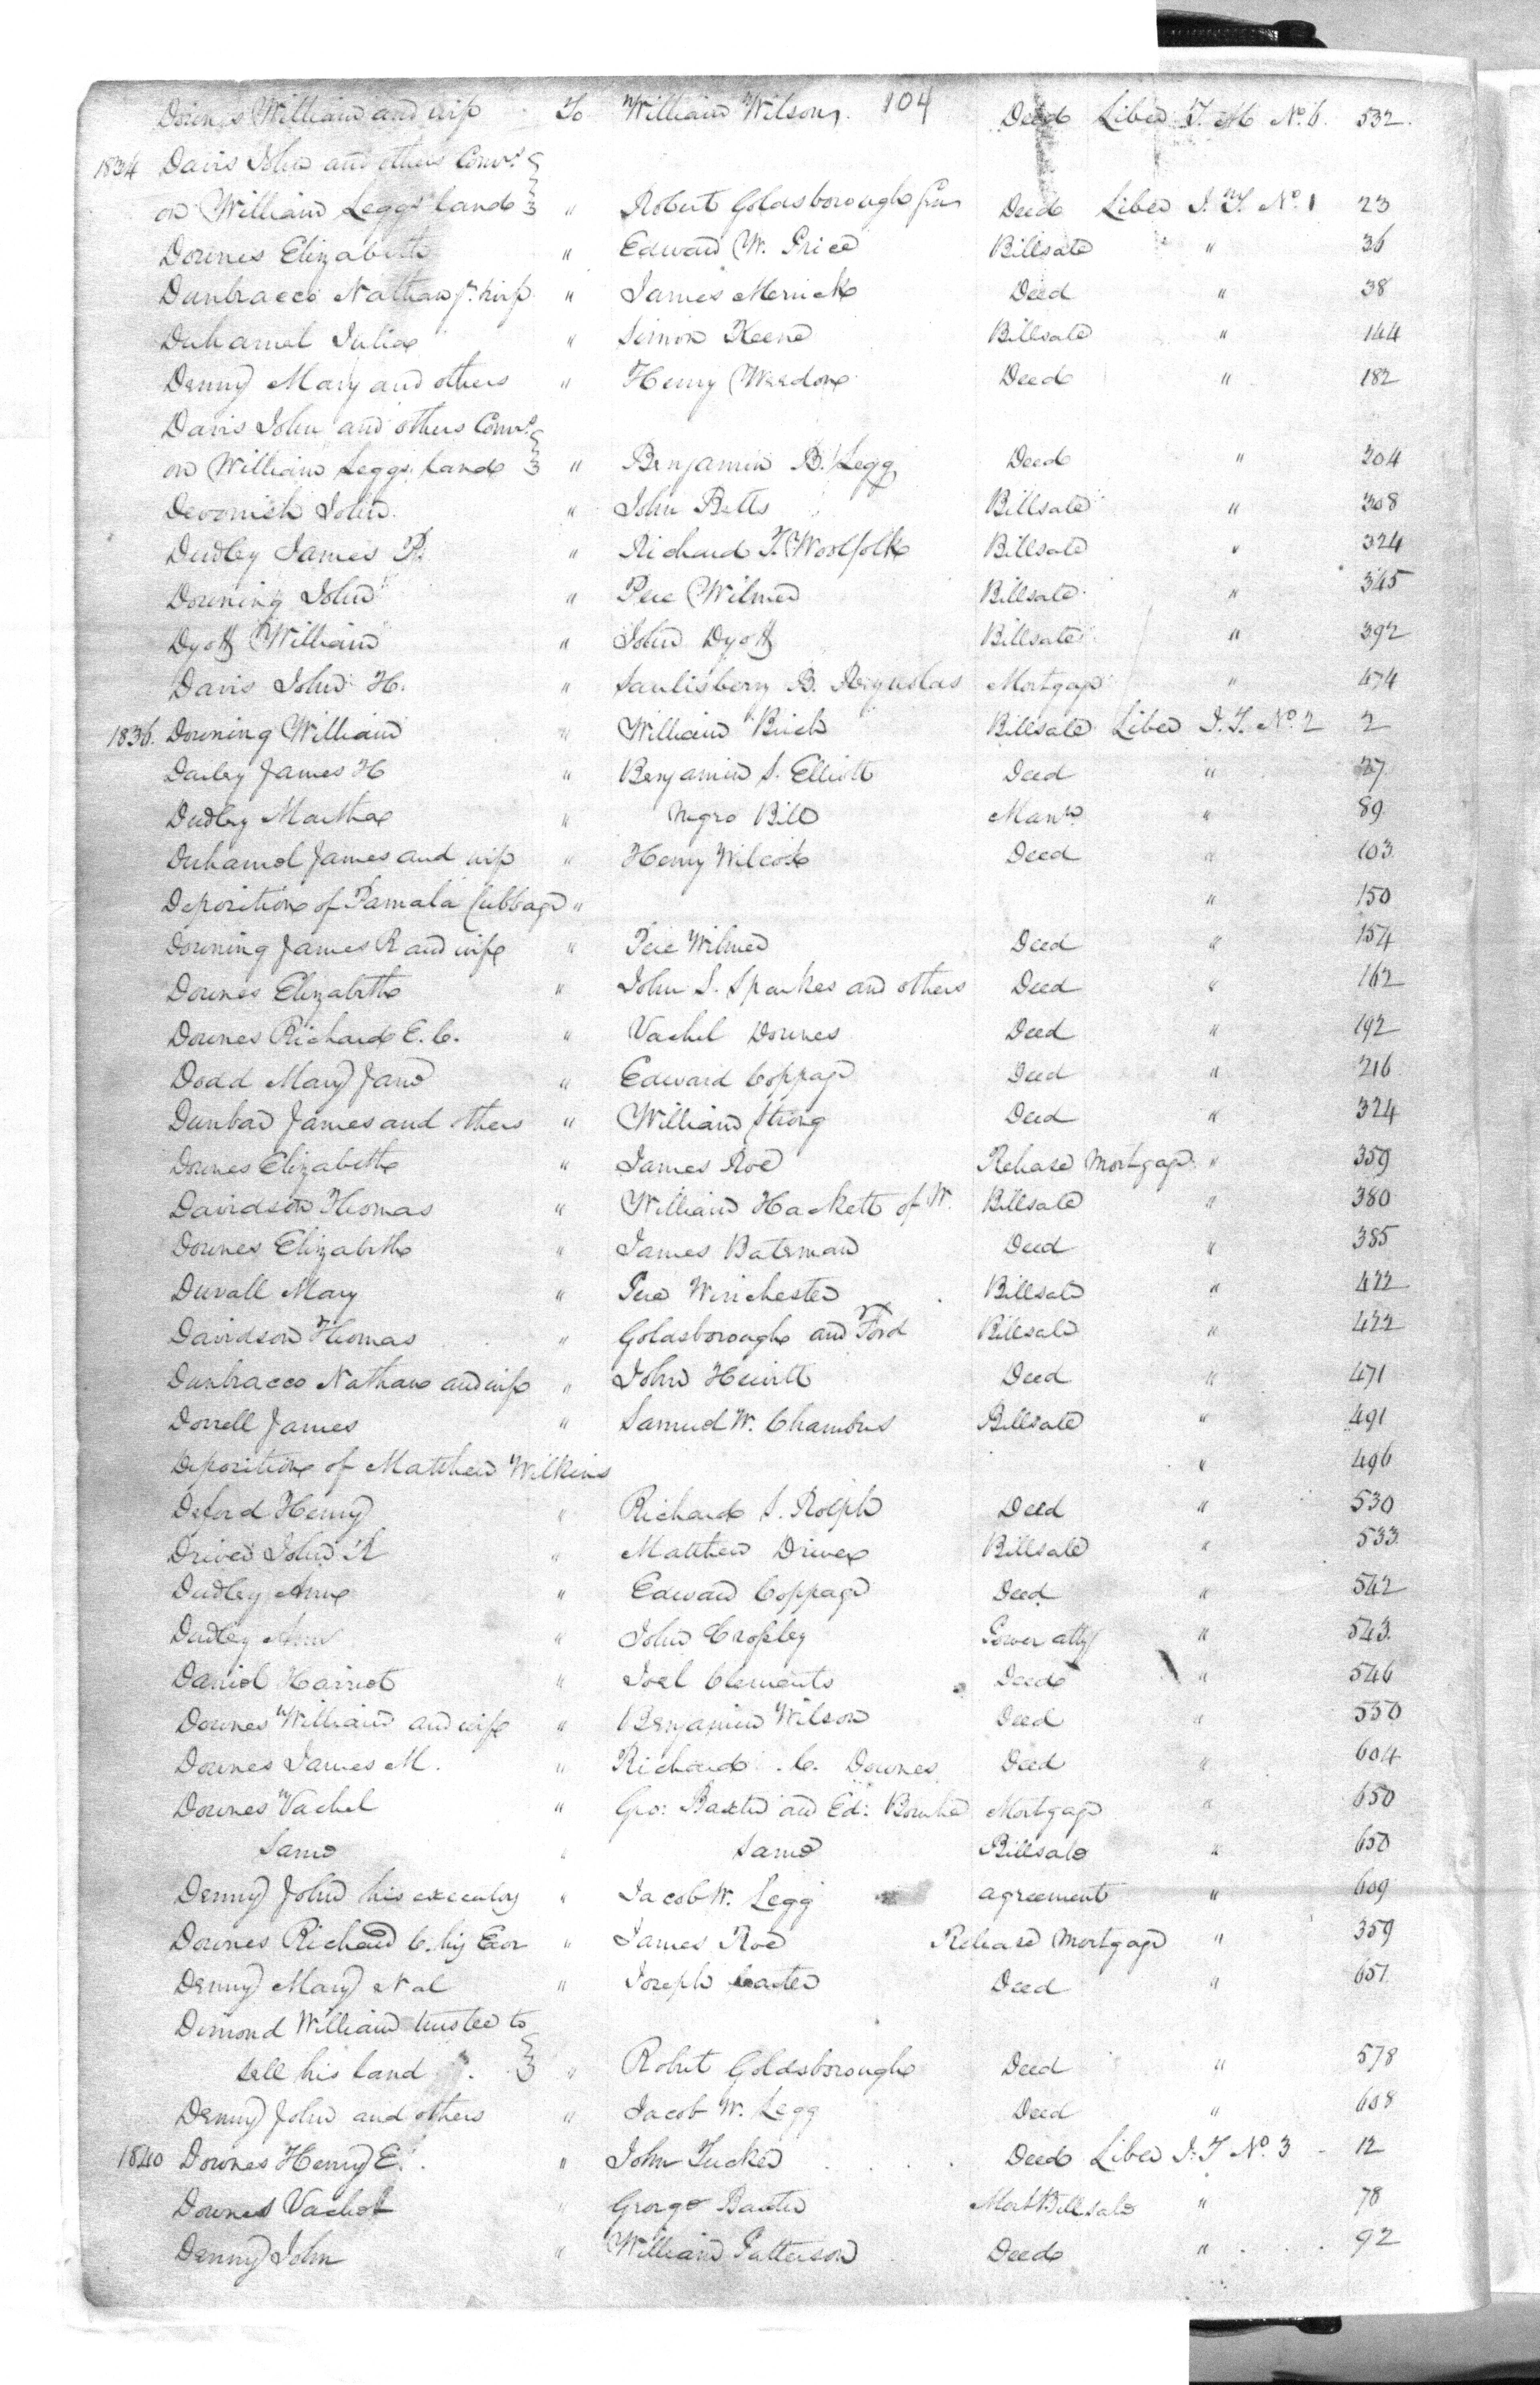 104
Downes William and wife To William Wilson Deed Liber T. M No. 6. 532.
1834 Davis John and others Comrs
on William Leggs land " Robert Goldsborough Deed Liber J. T. No. 1 23
Downes Elizabeth " Edward W. Price Billsale " 36
Dunbracco Nathan & wife " James Merrick Deed " 38
Duhamel Julia " Simon Keene Billsale " 144
Denny Mary and others " Henry Weedon Deed " 182
Davis John and others Comrs
on William Leggs land " Benjamin B. Legg Deed " 204
Devonish John " John Betts Billsale " 308
Dudley James P. " Richard T. Woolfolk Billsale " 324
Downing John " Pere Wilmer Billsale " 345
Dyott William " John Dyott Billsale " 392
Davis John H. " Saulisbery B. Mortgage " 474
1836. Downing William " William Billsale Liber J. T. No. 2 2
Dailey James H " Benjamin S. Elliott Deed " 27
Dudley Martha " Negro Bill Mann " 89
Duhamel James and wife " Henry Wilcox Deed " 103
Deposition of Pamala Cubbage " " 150
Downing James R and wife " Pere Wilmer Deed " 154
Downes Elizabeth " John S. Sparkes and others Deed " 162
Downes Richard E. C. " Vachel Downes Deed " 192
Dodd Mary Jane " Edward Coppage Deed " 216
Dunbar James and others " William Strong Deed " 324
Downes Elizabeth " James Roe Release Mortgage " 359
Davidson Thomas " William Hackett of W. Billsale " 380
Downes Elizabeth " James Bateman Deed " 385
Duvall Mary " Pere Winchester Billsale " 422
Davidson Thomas " Goldsborough and Ford Billsale " 422
Dunbracco Nathan and wife " John Hewitt Deed " 471
Dorrell James " Samuel W. Chambers Billsale " 491
Deposition of Matthew Wilkins " 496
Deford Henry " Richard S. Rolph Deed " 530
Driver John R " Matthew Driver Billsale " 533.
Dudley Ann " Edward Coppage Deed " 542
Dudley Ann " John Cropley Power atty " 543.
Daniel Harriot " Joel Clements Deed " 546
Downes William and wife " Benjamin Wilson Deed " 550
Downes James M. " Richard C. Downes Deed " 604
Downes Vachel " Geo: Baxter and Ed: Bourke Mortgage " 650
Same " Same Billsale " 650
Denny John his executors " Jacob W. Legg agreement " 609
Downes Richard C. his Exor " James Roe Release Mortgage " 359
Denny Mary N al " Joseph Deed " 651
Dimond William trustee to
sell his land " Robert Goldsborough Deed " 578
Denny John and others " Jacob W. Legg Deed " 608
1840 Downes Henry E. " John Tucker Deed Liber J. T No. 3 12
Downes Vachel " George Baxter Mort Billsale " 78
Denny John " William Patterson Deed " 92